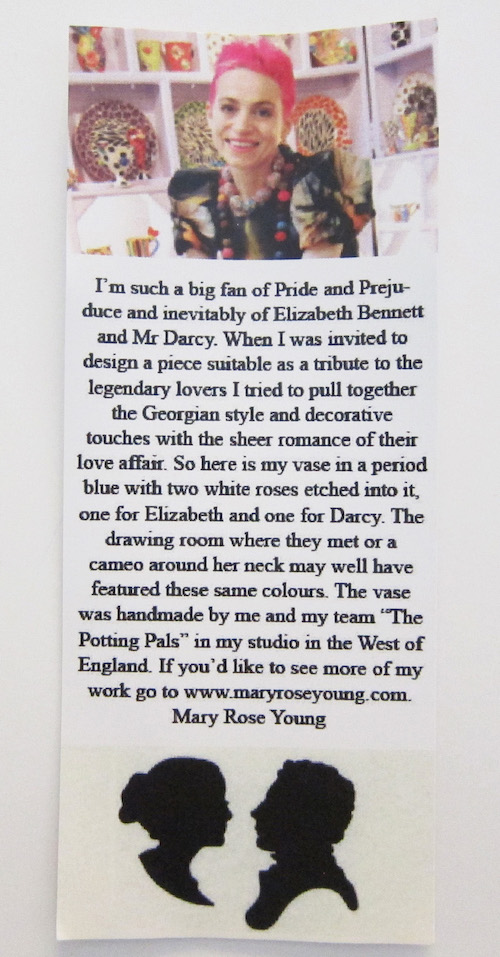 I'm such a big fan of Pride and Preju-
duce and inevitably of Elizabeth Bennett
and Mr Darcy. When I was invited to
design a piece suitable as a tribute to the
legendary lovers I tried to pull together
the Georgian style and decorative
touches with the sheer romance of their
love affair. So here is my vase in a period
blue with two white roses etched into it,
one for Elizabeth and one for Darcy. The
drawing room where they met or a
cameo around her neck may well have
featured these same colours. The vase
was handmade by me and my team "The
Potting Pals" in my studio in the West of
England. If you'd like to see more of my
work go to www.maryroseyoung.com.
Mary Rose Young